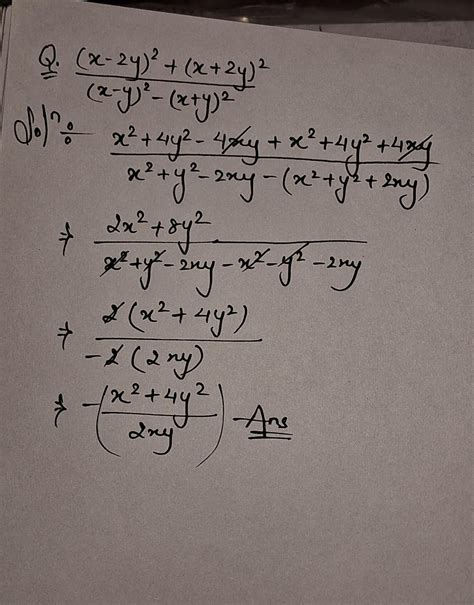 Q. (x-2y)² + (x+2y)²
(x-y)² - (x+y)²
Solⁿ÷ x²+4y²-4xy+x²+4y²+4xy
x²+y²-2xy-(x²+y²+2xy)
⇒ 2x²+8y²
x²+y²-2xy-x²-y²-2xy
⇒ 2(x²+4y²)
-2(2xy)
⇒ -(x²+4y²
2xy) - Ans